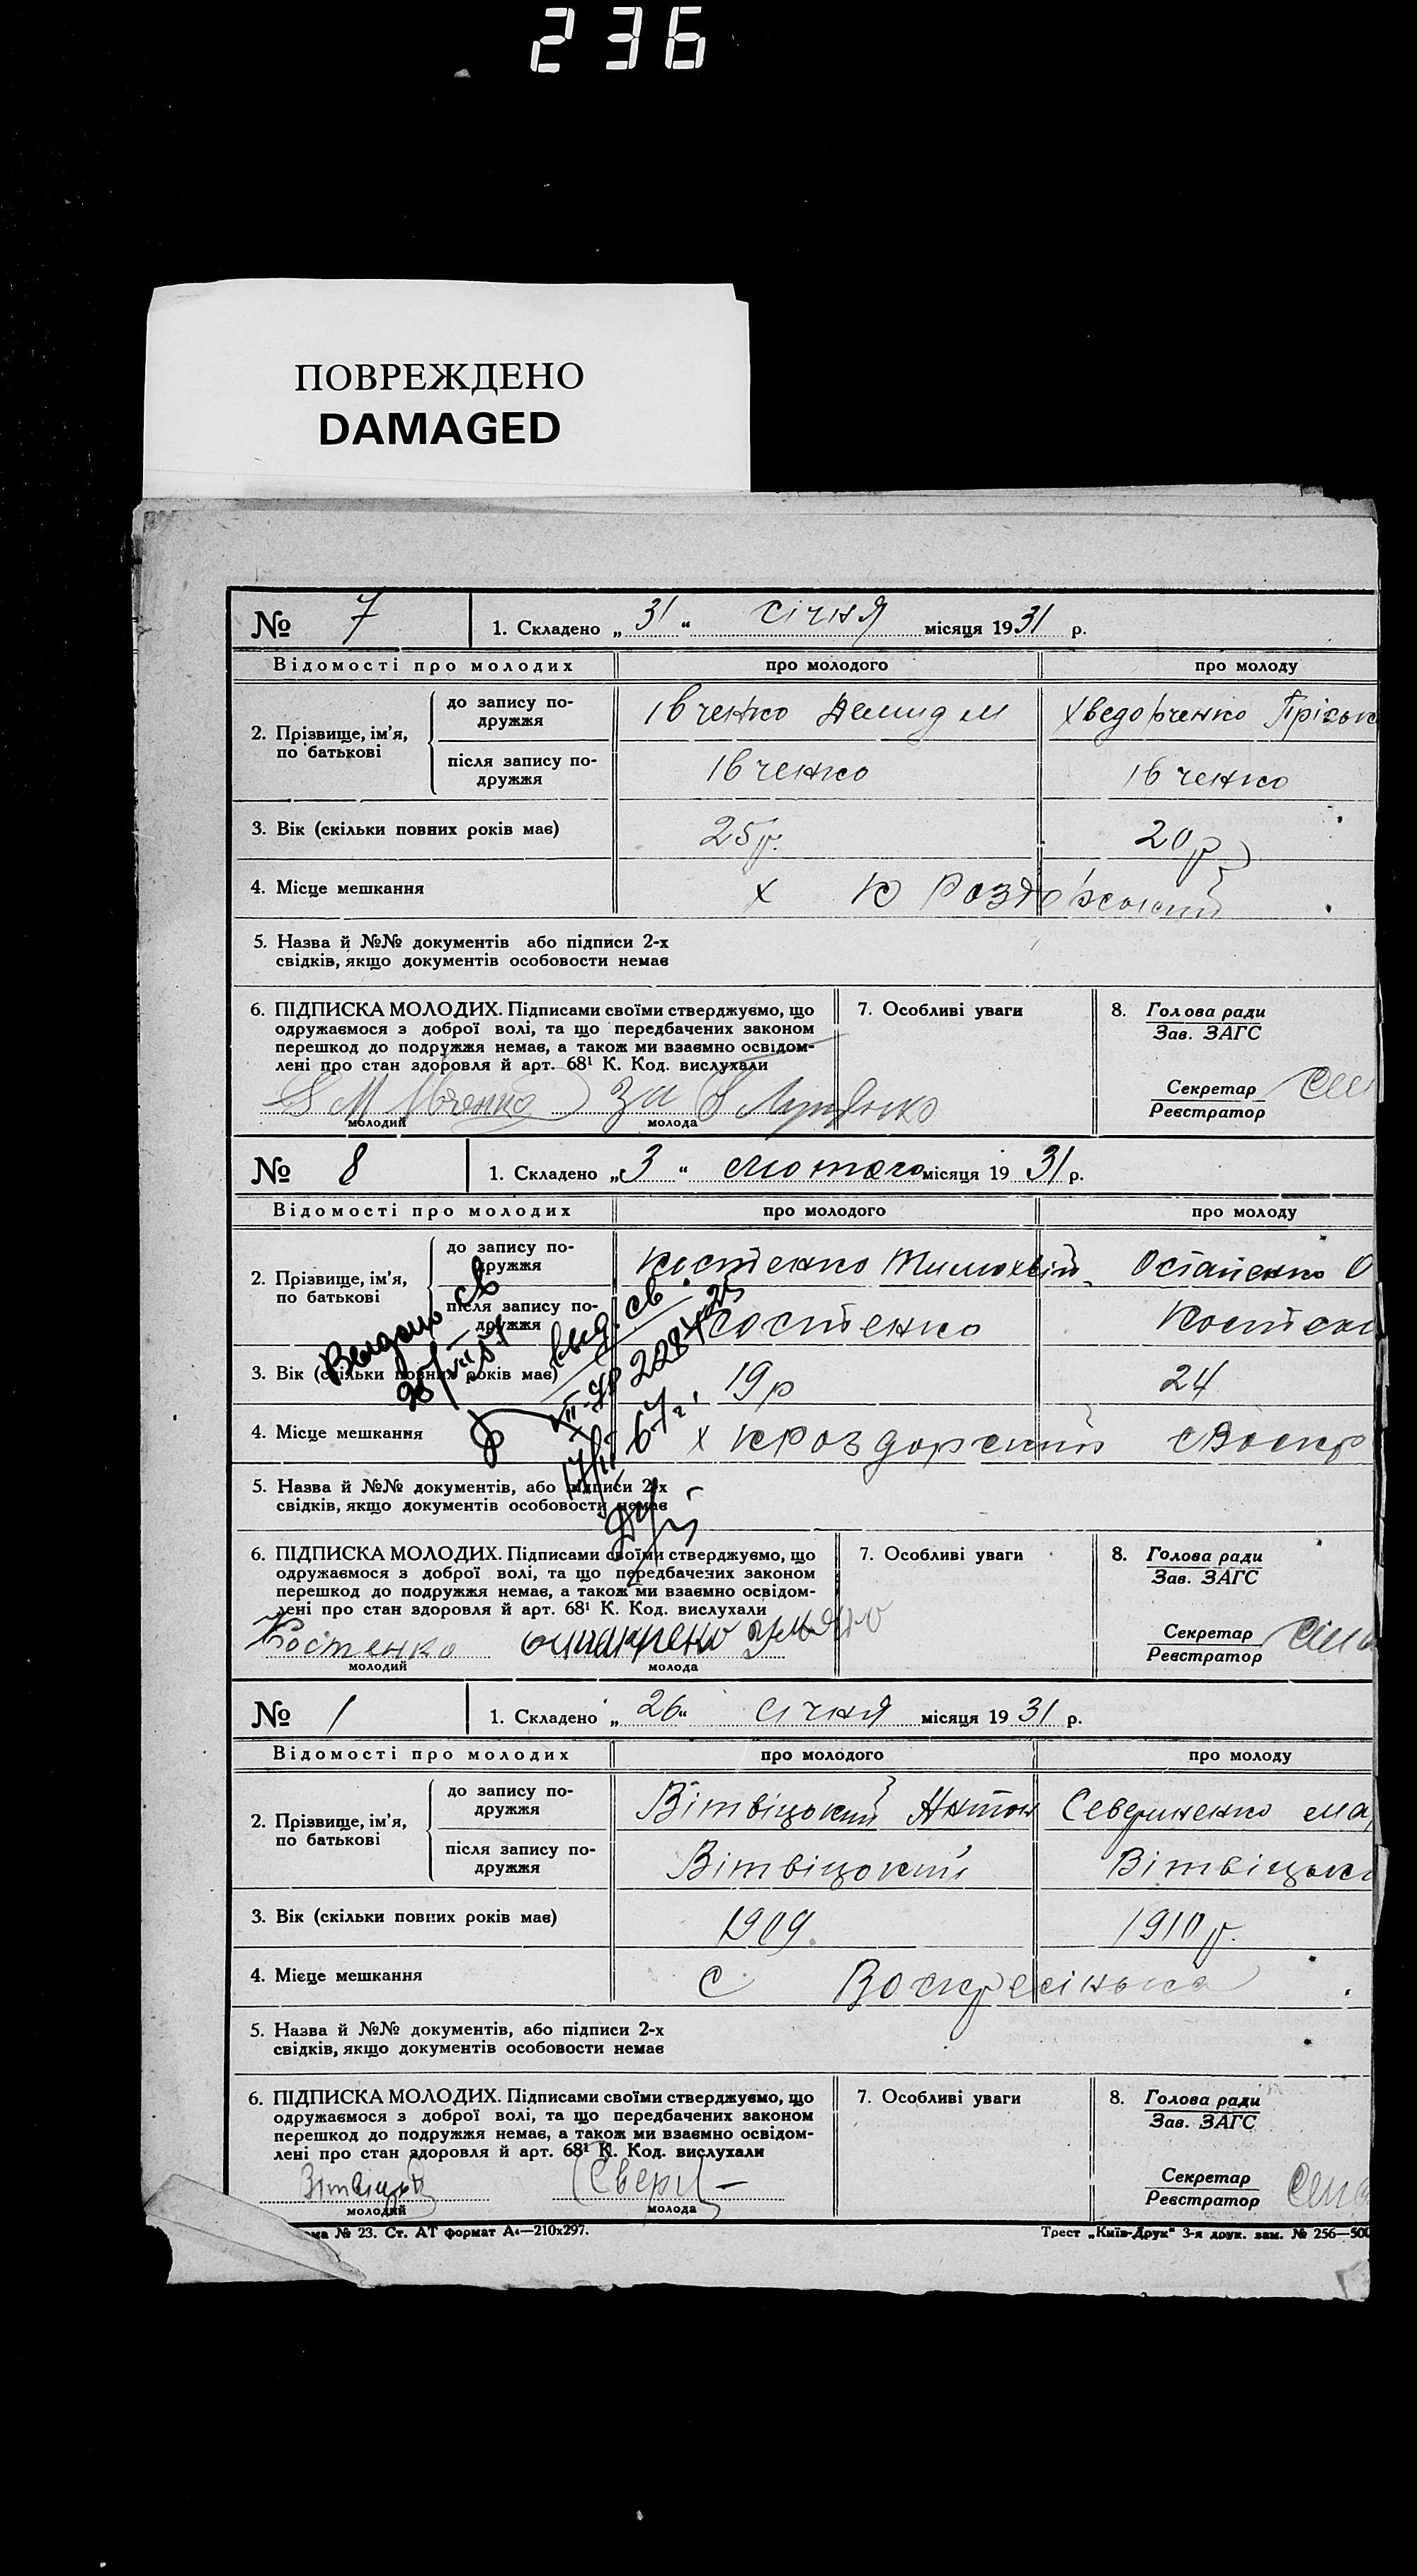 236
ПОВРЕЖДЕНО
DAMAGED
№ 7 1. Складено „31“ січня місяця 1931 р.
Відомості про молодих про молодого про молоду
2. Прізвище, ім'я, по батькові
до запису подружжя Івченко Демид М Хведорченко
після запису подружжя Івченко Івченко
3. Вік (скільки повних років має) 25р. 20р
4. Місце мешкання х К
5. Назва й №№ документів або підписи 2-х
свідків, якщо документів особовости немає
6. ПІДПИСКА МОЛОДИХ. Підписами своїми стверджуємо, що 7. Особливі уваги 8. Голова ради
одружаємося з доброї волі, та що передбачених законом Зав. ЗАГС
перешкод до подружжя немає, а також ми взаємно освідом-
лені про стан здоровля й арт. 68¹ К. Код. вислухали
Секретар
Реєстратор
молодий молода
№ 8 1. Складено „3“ лютого місяця 1931 р.
Відомості про молодих про молодого про молоду
2. Прізвище, ім'я, по батькові
до запису подружжя Костенко Остапенко О
після запису подружжя Костенко Костен
3. Вік (скільки повних років має) 19р 24
4. Місце мешкання х К Роздорский
5. Назва й №№ документів, або підписи 2-х
свідків, якщо документів особовости немає
6. ПІДПИСКА МОЛОДИХ. Підписами своїми стверджуємо, що 7. Особливі уваги 8. Голова ради
одружаємося з доброї волі, та що передбачених законом Зав. ЗАГС
перешкод до подружжя немає, а також ми взаємно освідом-
лені про стан здоровля й арт. 68¹ К. Код. вислухали
Костенко Секретар
Реєстратор
молодий молода
№ 1 1. Складено „26“ січня місяця 1931 р.
Відомості про молодих про молодого про молоду
2. Прізвище, ім'я, по батькові
до запису подружжя Вітвіцький Антон Севериненко Ма
після запису подружжя Вітвіцький Вітвіцька
3. Вік (скільки повних років має) 1909. 1910 р.
4. Місце мешкання С Воскресінька
5. Назва й №№ документів, або підписи 2-х
свідків, якщо документів особовости немає
6. ПІДПИСКА МОЛОДИХ. Підписами своїми стверджуємо, що 7. Особливі уваги 8. Голова ради
одружаємося з доброї волі, та що передбачених законом Зав. ЗАГС
перешкод до подружжя немає, а також ми взаємно освідом-
лені про стан здоровля й арт. 68¹ К. Код. вислухали
Секретар
Реєстратор
молодий молода
ма № 23. Ст. АТ формат А4—210x297. Трест „Київ-Друк“ 3-я друк. зам. № 256—500